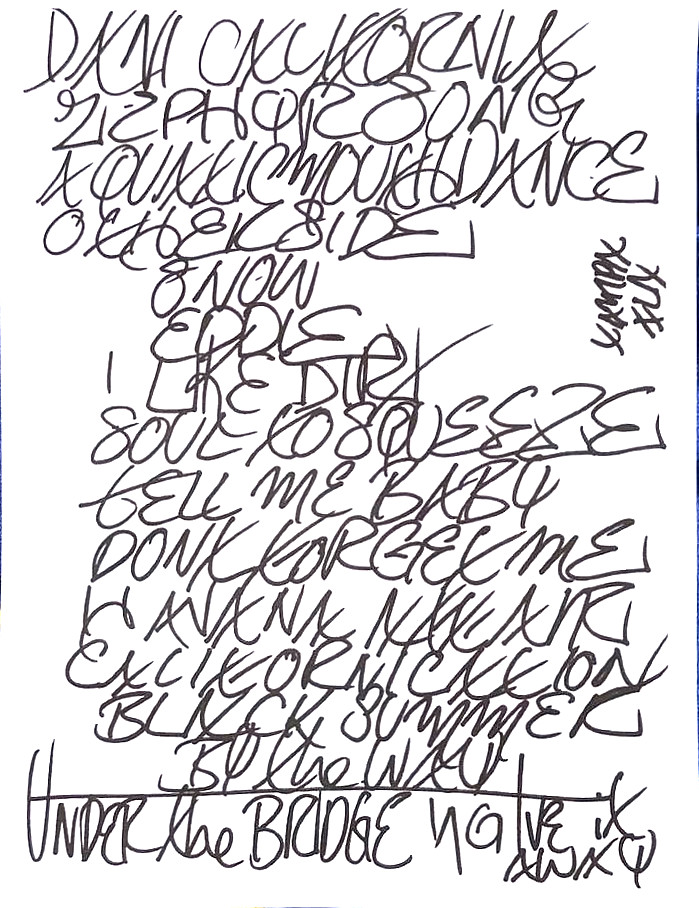 DANI CALIFORNIA
ZEPHYR SONG
AQUATIC MOUTH DANCE
OTHERSIDE
SNOW
EDDIE
I LIKE DIRT
SOUL TO SQUEEZE
TELL ME BABY
DONT FORGET ME
HAVANA AFFAIR
CALIFORNICATION
BLACK SUMMER
BY the WAY
UNDER the BRIDGE GIVE iT
AWAY
TAMPA
FLA